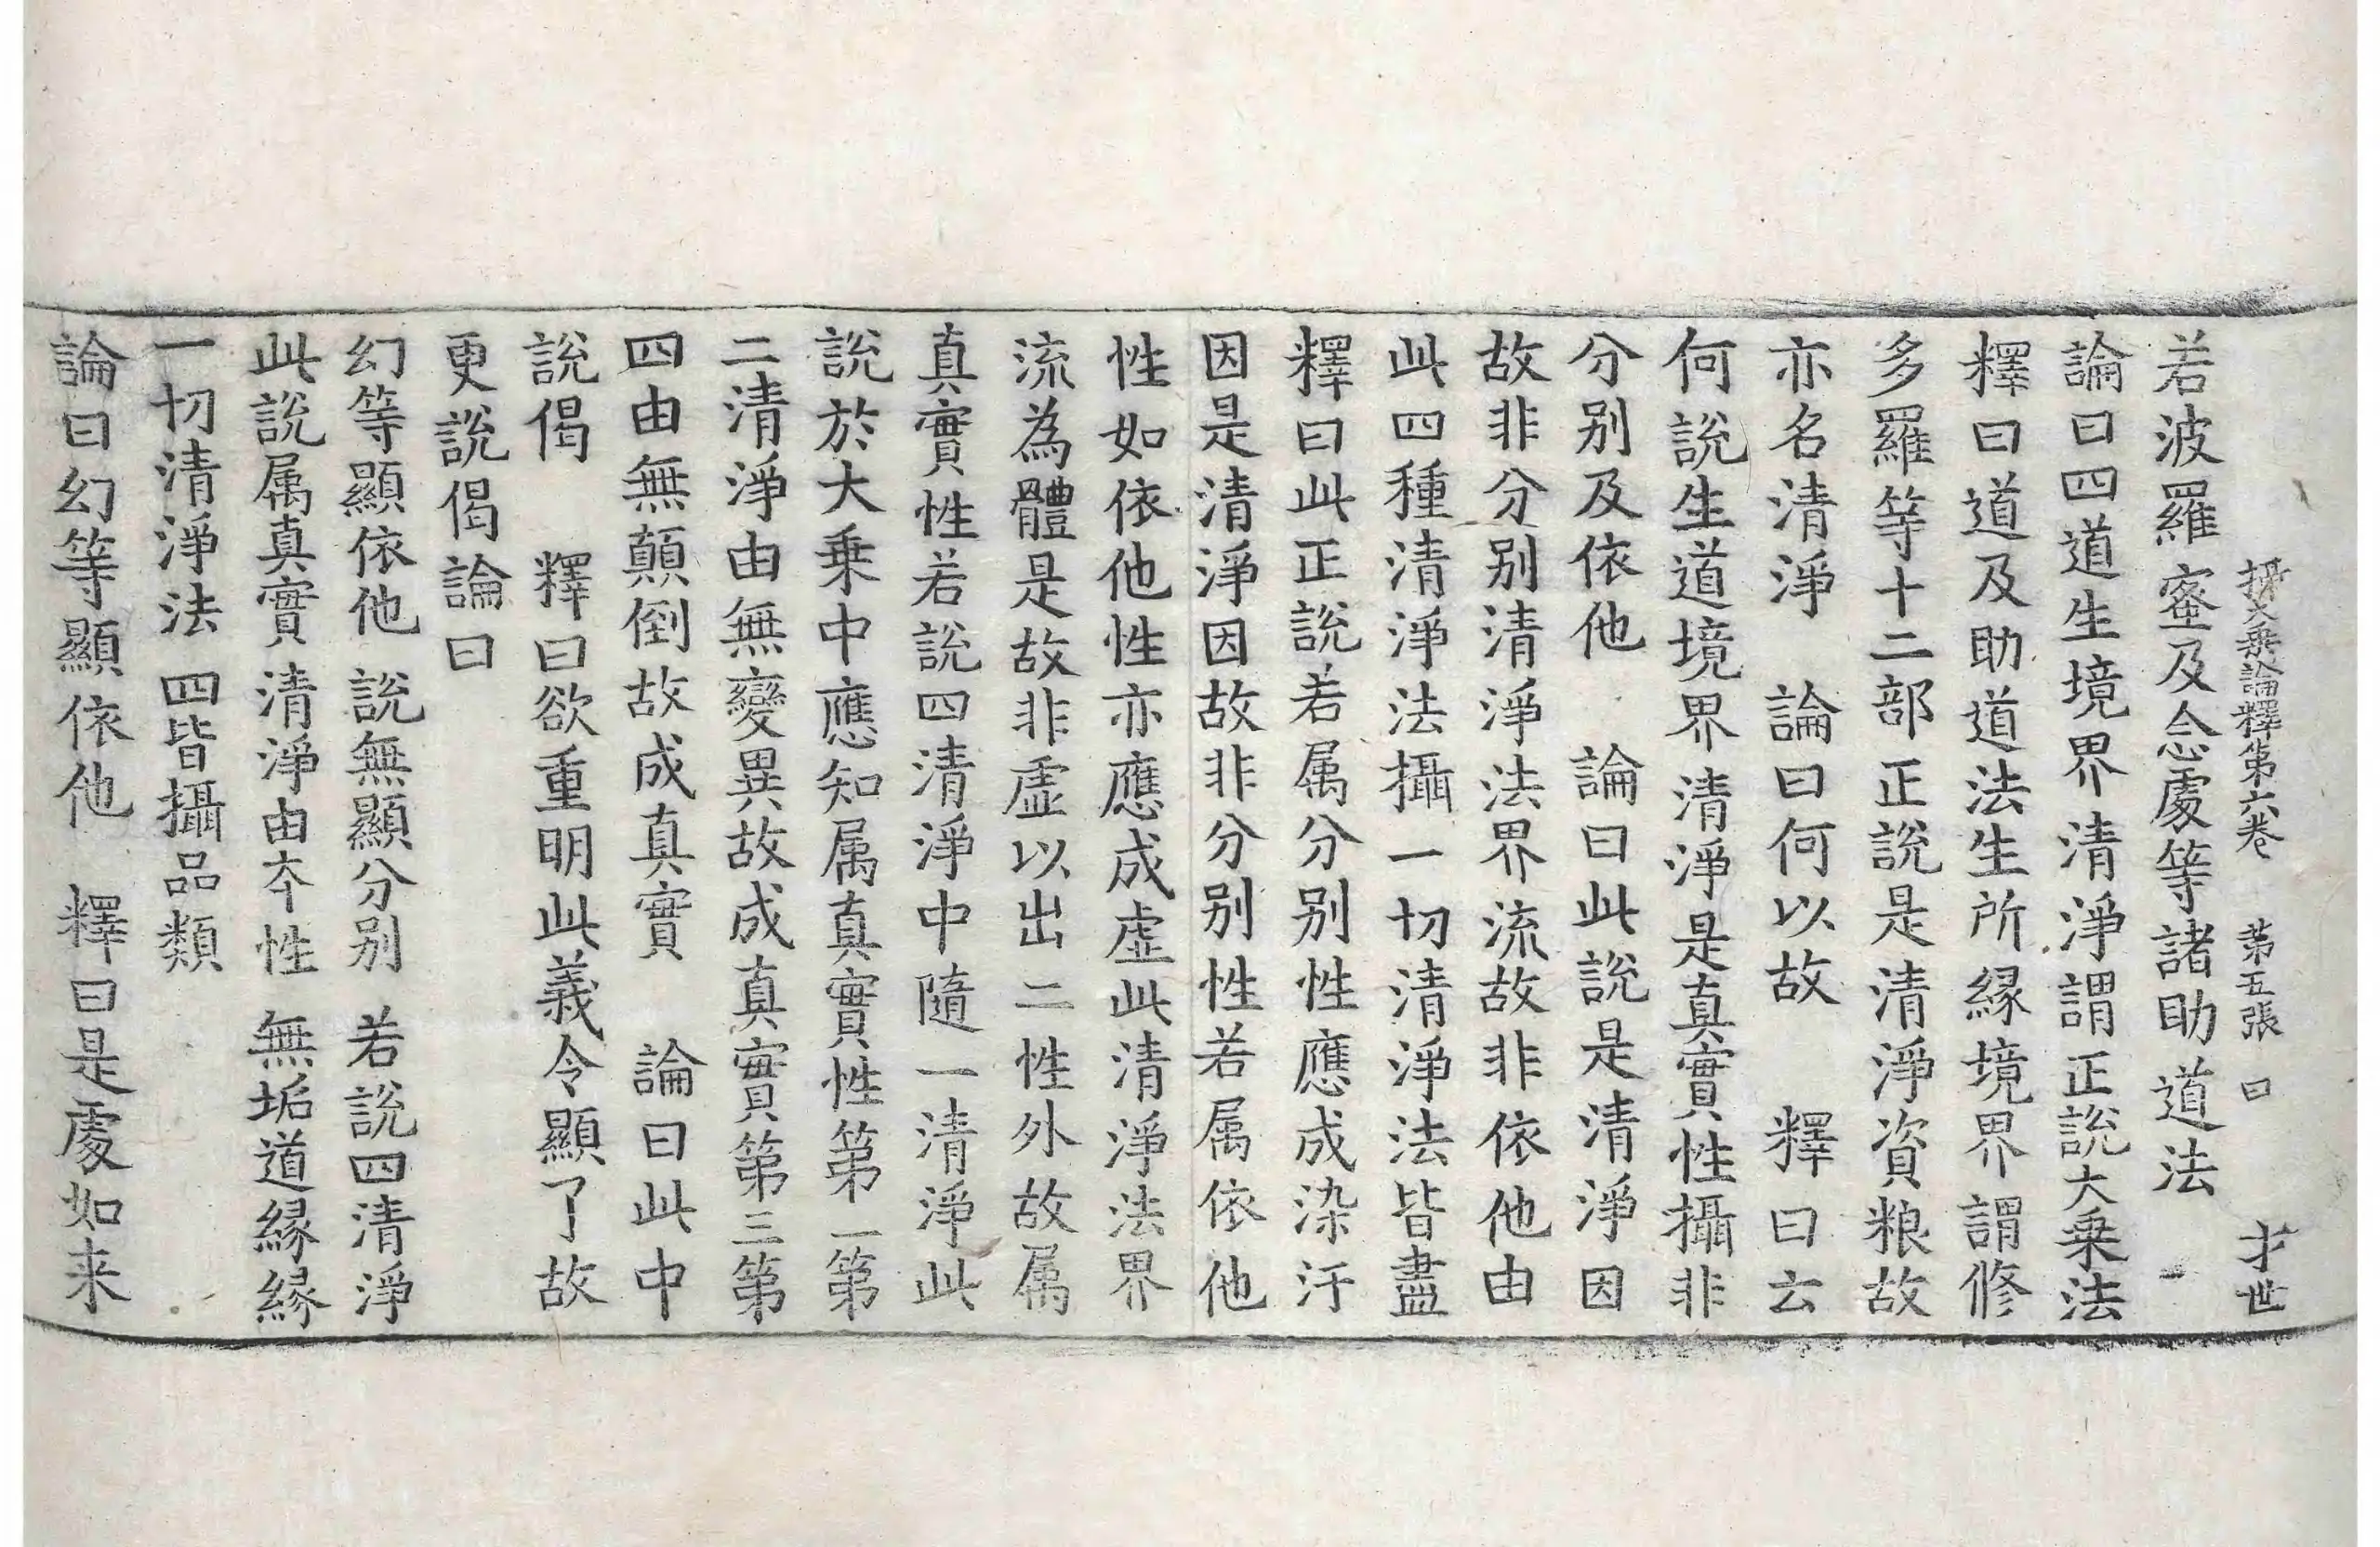 攝大乗論釋第六卷 第五張 曰 才世
若波羅蜜及念處等諸助道法
論曰四道生境界清淨謂正說大乗法
釋曰道及助道法生所縁境界謂修
多羅等十二部正說是清淨資粮故
亦名清淨 論曰何以故 釋曰云
何說生道境界清淨是真實性攝非
分别及依他 論曰此說是清淨因
故非分别清淨法界流故非依他由
此四種清淨法攝一切清淨法皆盡
釋曰此正說若属分别性應成染汙
因是清淨因故非分别性若属依他
性如依他性亦應成虚此清淨法界
流為體是故非虚以出二性外故属
真實性若說四清淨中隨一清淨此
說於大乗中應知属真實性第一第
二清淨由無變異故成真實第三第
四由無顛倒故成真實 論曰此中
說偈 釋曰欲重明此義令顯了故
更說偈論曰
幻等顯依他 說無顯分别 若說四清淨
此說属真實 清淨由夲性 無垢道縁縁
一切清淨法 四皆攝品類
論曰幻等顯依他 釋曰是處如来